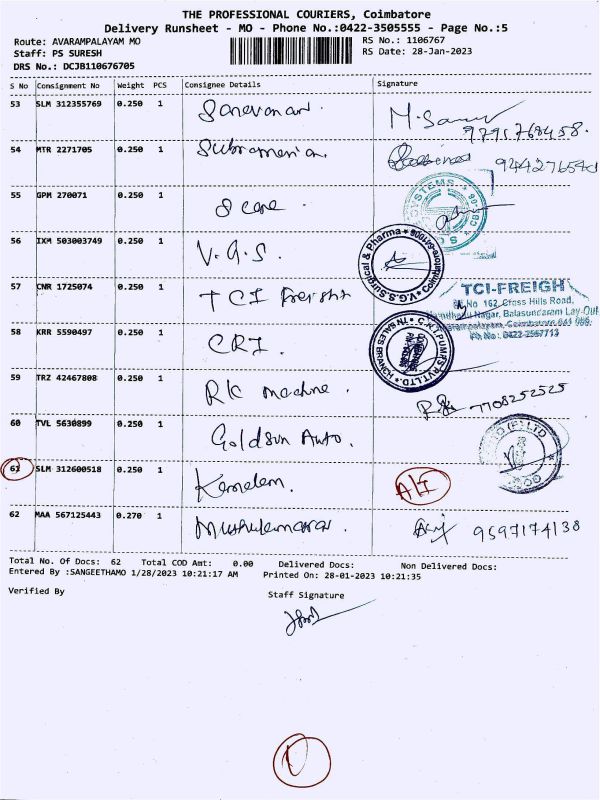 THE PROFESSIONAL COURIERS, Coimbatore
Delivery Runsheet - MO - Phone No.:0422-3505555 - Page No.:5
Route: AVARAMPALAYAM MO RS No.: 1106767
Staff: PS SURESH RS Date: 28-Jan-2023
DRS No.: DCJB110676705
S No Consignment No Weight PCS Consignee Details Signature
53 SLM 312355769 0.250 1 Saravanan. M.
9791768458.
54 MTR 2271705 0.250 1 Subramanian.
55 GPM 270071 0.250 1 Scane.
56 IXM 503003749 0.250 1 V.G.S. V.G.S.Surgical & Pharma
57 CNR 1725074 0.250 1 TCI Freight TCI-FREIGH
No 162, Cross Hills Road,
Nagar, Balasundaram Lay-Out
Coimbatore
Ph No: 0422-2567713
58 KRR 5590497 0.250 1 CRI. C.R.I.PUMPS PVT.LTD. (TN SALES BRANCH)
59 TRZ 42467808 0.250 1 RK machine. 7708252525
60 TVL 5630899 0.250 1 Goldsun Auto.
61 SLM 312600518 0.250 1
62 MAA 567125443 0.270 1 9597174138
Total No. Of Docs: 62 Total COD Amt: 0.00 Delivered Docs: Non Delivered Docs:
Entered By :SANGEETHAMO 1/28/2023 10:21:17 AM Printed On: 28-01-2023 10:21:35
Verified By Staff Signature